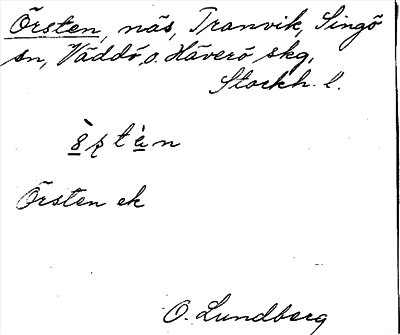 Örsten, näs, Tranvik, Singö
sn, Väddö o. Häverö skg,
Stockh. l.
Örsten ek
O. Lundberg